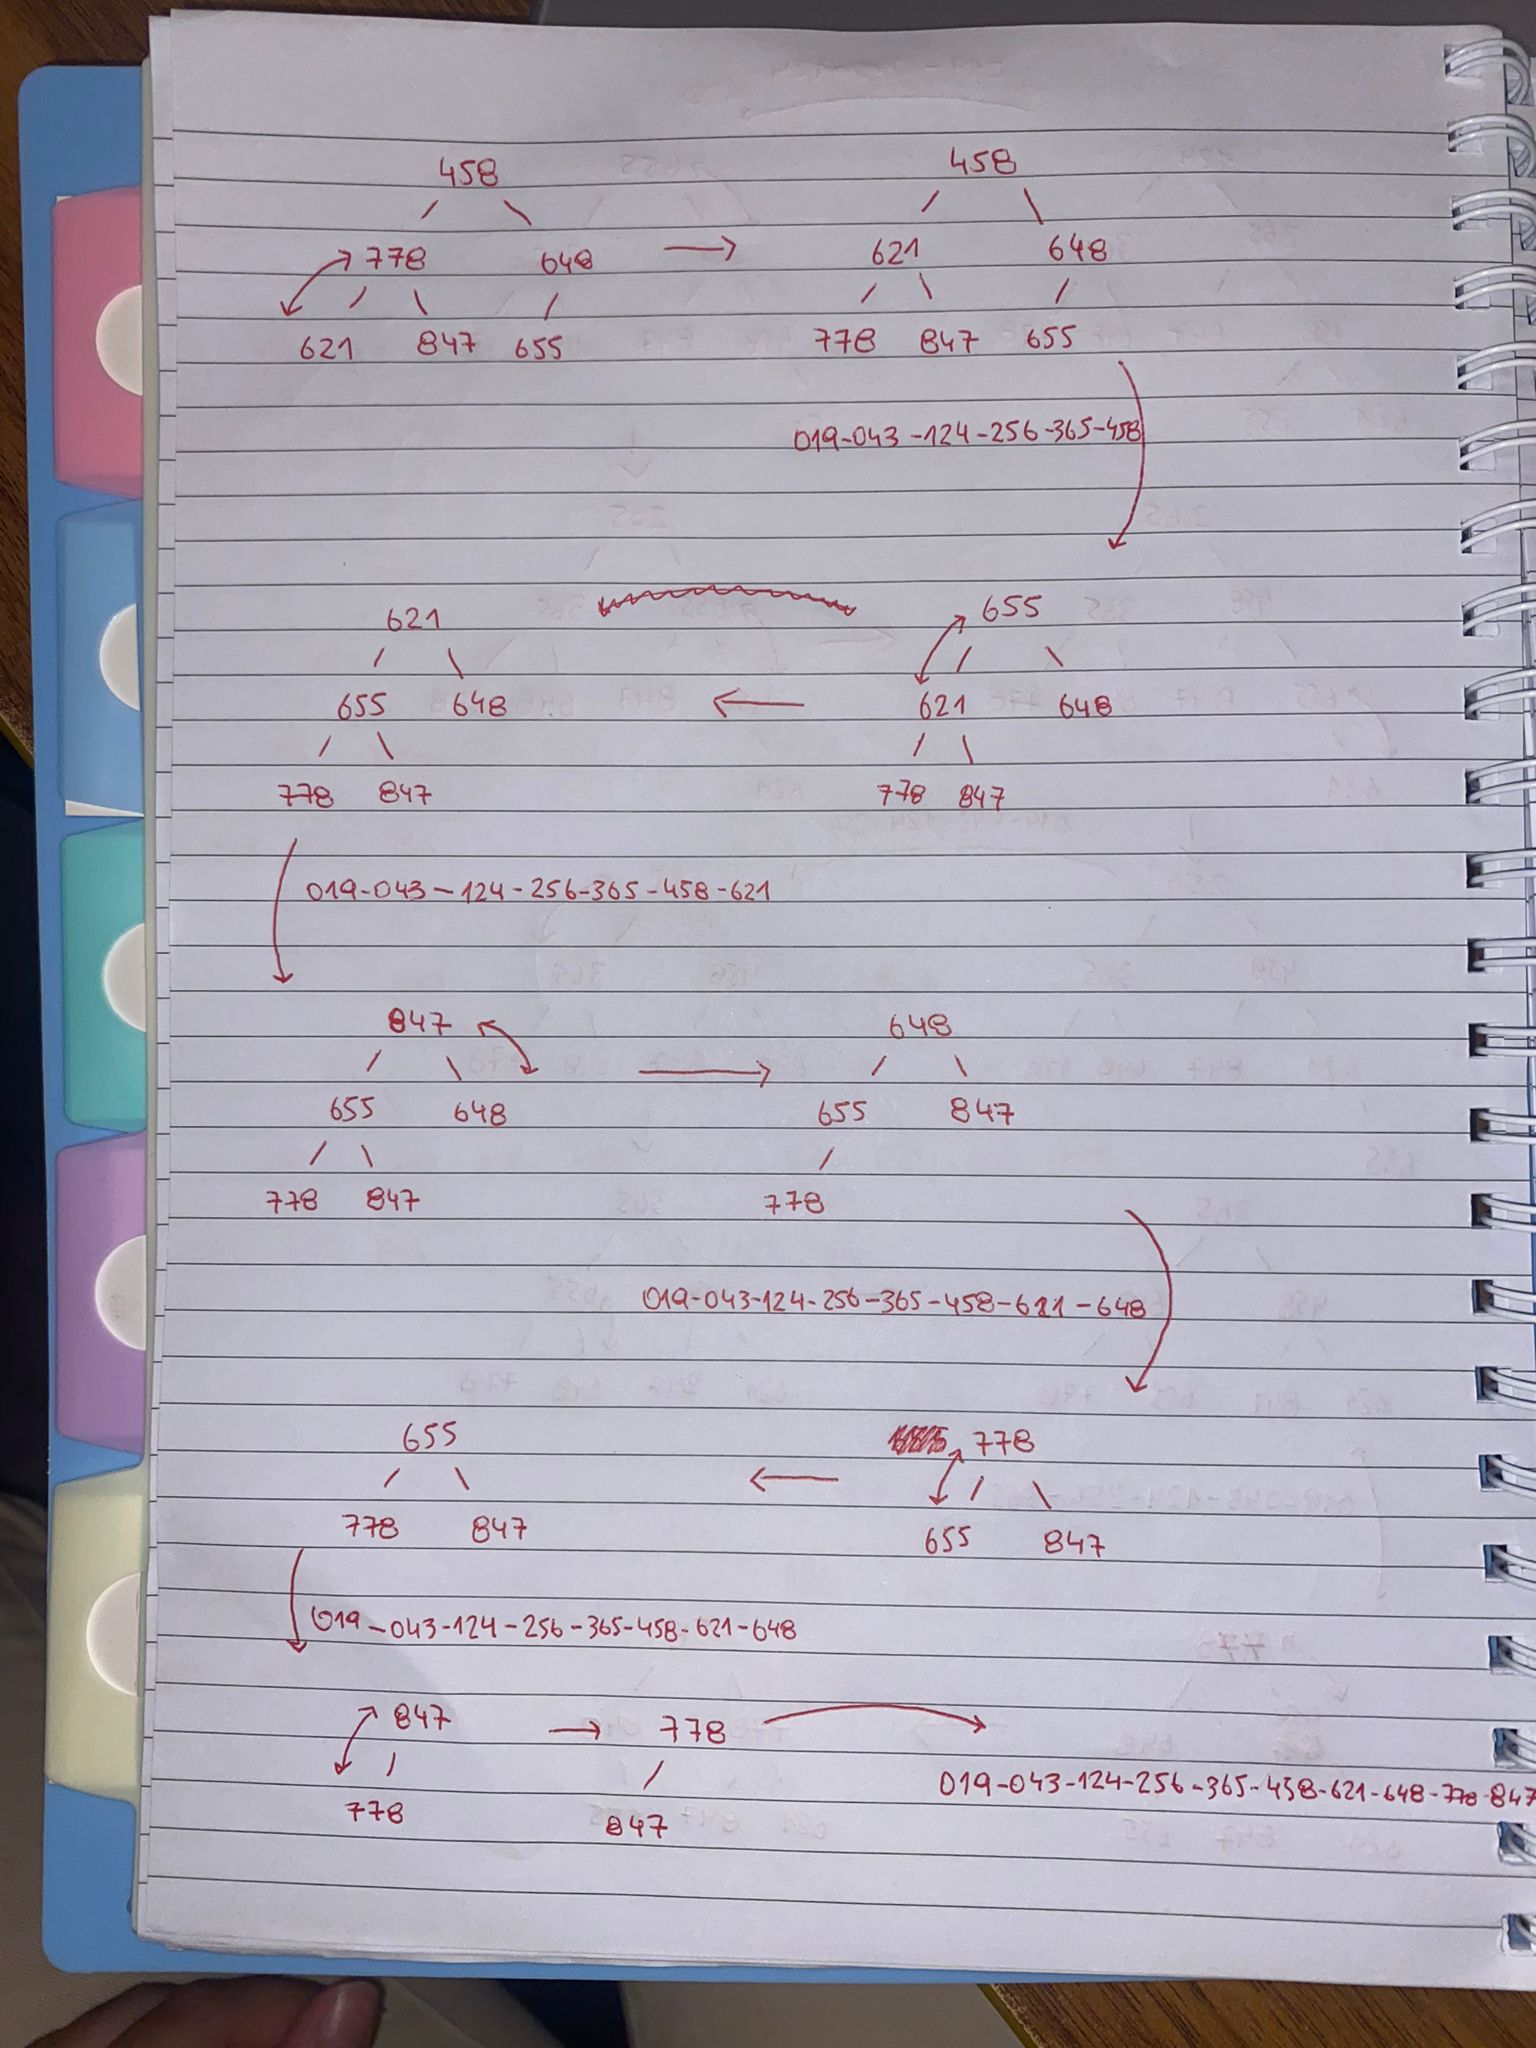 458 458
778 648 621 648
621 847 655 778 847 655
019-043-124-256-365-458
621 655
655 648 621 648
778 847 778 847
019-043-124-256-365-458-621
847 648
655 648 655 847
778 847 778
019-043-124-256-365-458-621-648
655 778
778 847 655 847
019-043-124-256-365-458-621-648
847 778
778 847
019-043-124-256-365-458-621-648-778-847